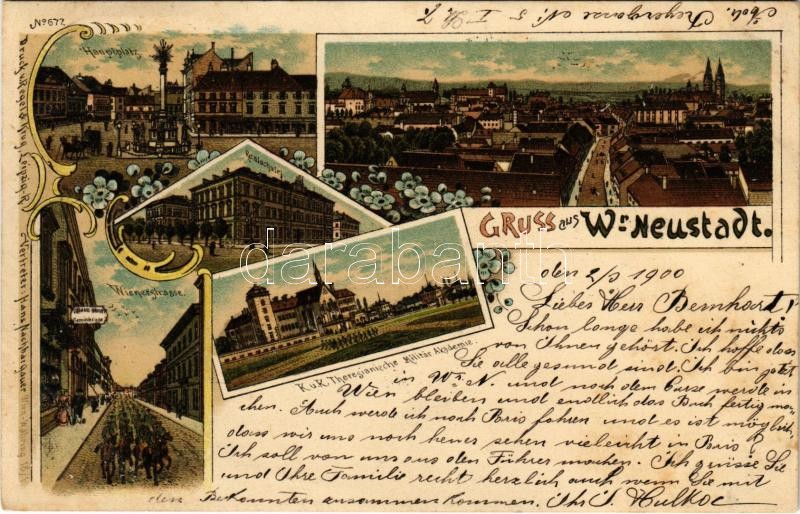 No 677
Hauptplatz.
Realschule
Wienerstrasse.
K. u. K. Theresianische Militär Akademie.
Gruss aus Wr. Neustadt.
darabanth
den 2/3 1900
Liebes Herr Bernhart!
Schon lange habe ich nichts
von Ihnen gehört. Ich hoffe dass
Sie alle gesund sind. Ich bin jetzt
in Wr. N. und nach dem Curse werde in
Wien bleiben und endlich das Buch fertig ma-
chen. Auch werde ich nach Paris fahren und es ist möglich,
dass wir uns noch heuer sehen vieleicht in Paris?
Ich soll von uns aus den Führer machen. Ich grüsse Sie
und Ihre Familie recht herzlich auch wenn Sie mit
den Bekannten zusammen kommen. Ihr